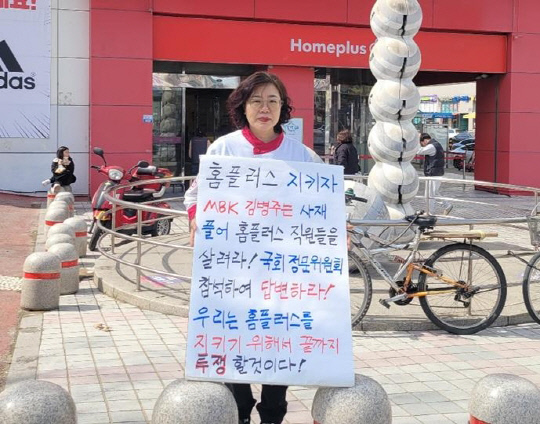 das
Homeplus
홈플러스 지키자
MBK 김병주는 사재
풀어 홈플러스 직원들을
살려라! 국회 정무위원회
참석하여 답변하라!
우리는 홈플러스를
지키기 위해서 끝까지
투쟁 할것이다!